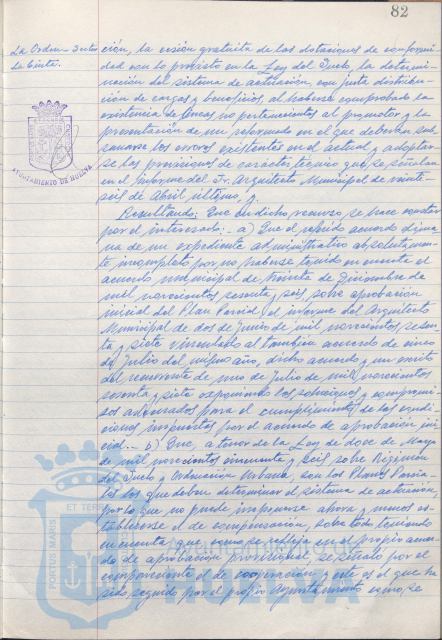 82
La Orden - Santa
La Cinta.
AYUNTAMIENTO DE HUELVA
ción, la cesión gratuita de las dotaciones de conformi-
dad con lo previsto en la Ley del Suelo, la determi-
nación del sistema de actuación, con justa distribu-
ción de cargas y beneficios, al haberse comprobado la
existencia de fincas no pertenecientes al promotor y la
presentación de un reformado en el que deberán sub-
sanarse los errores existentes en el actual y adoptar-
se las previsiones de carácter técnico que se señalan
en el informe del Sr. Arquitecto Municipal de veinte-
seis de Abril último, y
Resultando: Que en dicho recurso se hace constar
por el interesado: - a) Que el referido acuerdo dima-
na de un expediente administrativo absolutamen-
te incompleto por no haberse tenido en cuenta el
acuerdo municipal de treinta de Diciembre de
mil novecientos sesenta y seis, sobre aprobación
inicial del Plan Parcial, el informe del Arquitecto
Municipal de dos de Junio de mil novecientos sesen-
ta y siete vinculado al también acuerdo de cinco
de Julio del mismo año, dicho acuerdo y un escrito
del recurrente de uno de Julio de mil novecientos
sesenta y siete exponiendo los y compromi-
sos adquiridos para el cumplimiento de las condi-
ciones impuestas por el acuerdo de aprobación ini-
cial. - b) Que, a tenor de la Ley de doce de Mayo
de mil novecientos cincuenta y seis sobre Régimen
del Suelo y Ordenación Urbana, son los Planes Parcia-
les los que deben determinar el sistema de actuación
por lo que no puede imponerse ahora y menos es-
tablecerse el de compensación, sobre todo teniendo
en cuenta que como se refleja en el propio acuer-
do de aprobación provisional se señaló por el
el de cooperación y este es el que ha
sido seguido por el propio Ayuntamiento como, se
ET TERRÆ
PORTUS MARIS
Ayuntamiento de
HUELVA